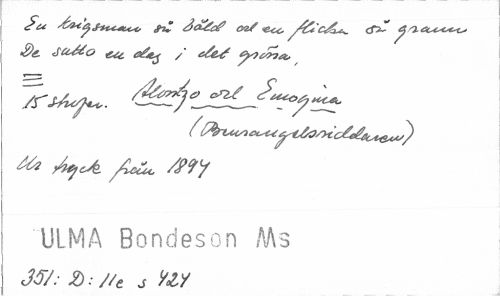 En krigsman så båld och en flicka så grann
De sutto en dag i det gröna,
15 strofer. Alonzo och Emogina
(Bonrangelsriddaren)
Ur tryck från 1894
ULMA Bondeson Ms
351: D: 11e s 424